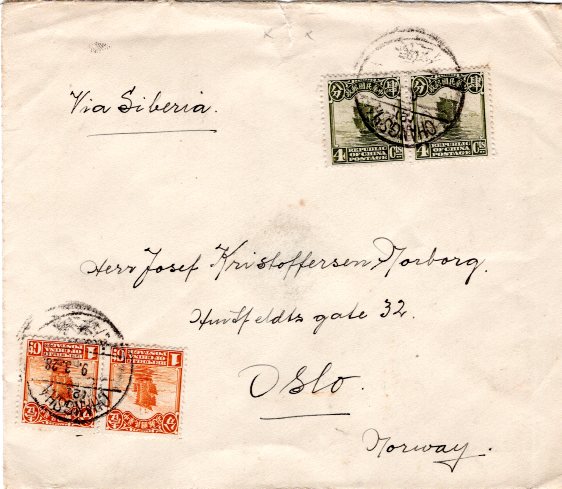 Via Siberia.
CHANGSHA
4 REPUBLIC OF CHINA POSTAGE Cts
4 REPUBLIC OF CHINA POSTAGE Cts
Herr Josef Kristoffersen Norborg.
Huitfeldtz gate 32.
Oslo.
Norway.
1 REPUBLIC OF CHINA POSTAGE
1 REPUBLIC OF CHINA POSTAGE
9.3.28
CHANGSHA